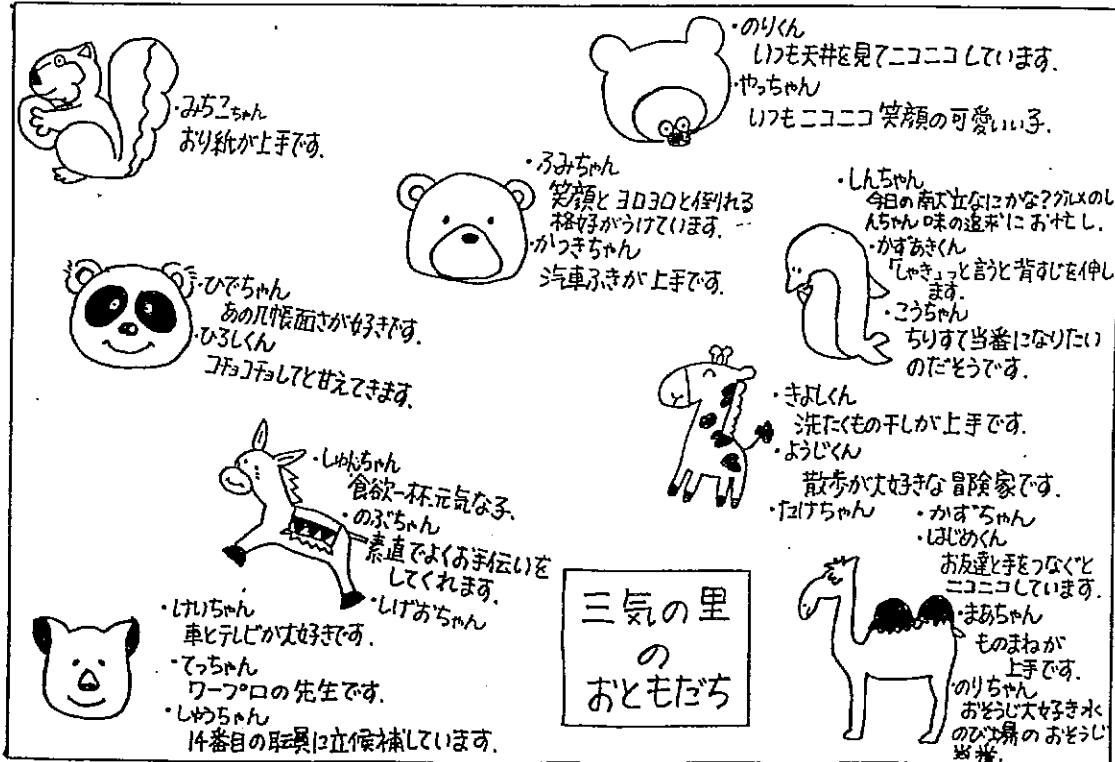 ・みちこちゃん
おり紙が上手です.
・のりくん
いつも天井を見てニコニコしています.
・やっちゃん
いつもニコニコ笑顔の可愛いい子.
・ふみちゃん
笑顔とヨロヨロと倒れる
格好がうけています.
・かつきちゃん
汽車ふきが上手です.
・しんちゃん
今日の献立なにかな?グルメのし
んちゃん味の追求にお忙し.
・かずあきくん
「しゃき」っと言うと背すじを伸し
ます.
・こうちゃん
ちりすて当番になりたい
のだそうです.
・ひでちゃん
あの几帳面さが好きです.
・ひろしくん
コチョコチョしてと甘えてきます.
・きよしくん
洗たくもの干しが上手です.
・ようじくん
散歩が大好きな冒険家です.
・たけちゃん
・かずちゃん
・はじめくん
お友達と手をつなぐと
ニコニコしています.
・まあちゃん
ものまねが
上手です.
・のりちゃん
おそうじ大好き水
のび場のおそうじ
当番.
・しゅんちゃん
食欲一杯元気な子.
・のぶちゃん
素直でよくお手伝いを
してくれます.
・しげおちゃん
・けいちゃん
車とテレビが大好きです.
・てっちゃん
ワープロの先生です.
・しゅうちゃん
14番目の職員に立候補しています.
三気の里
の
おともだち